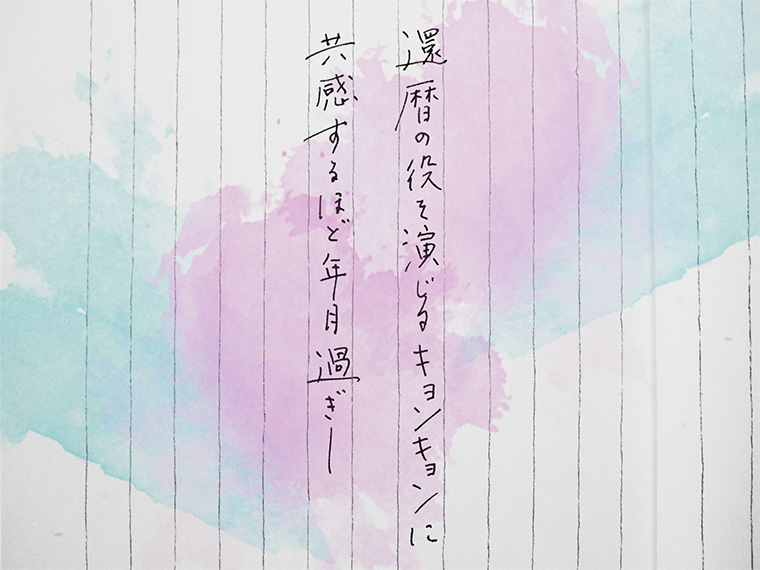 還暦の役を演じるキョンキョンに
共感するほど年月過ぎし